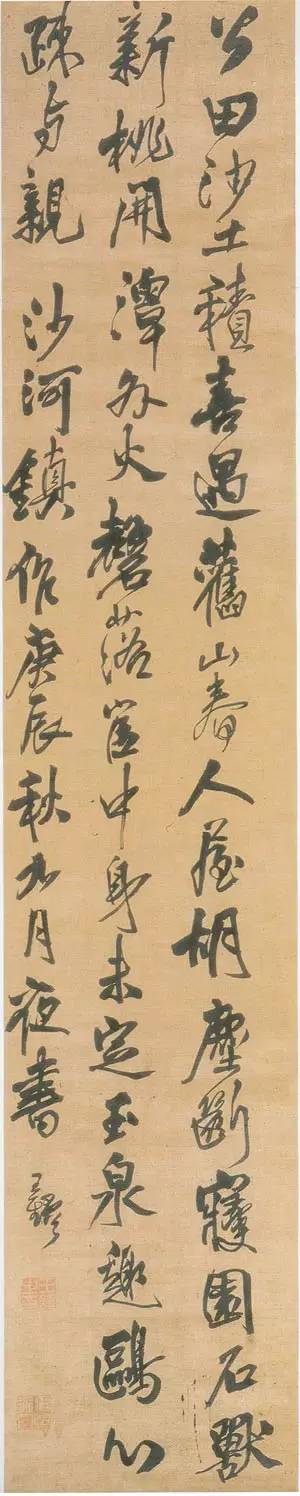 公田沙土積喜遇舊山春人屋胡塵斷寢園石獸
新桃開潭外火磬落嵓中身未定玉泉趣鷗心
疎与親 沙河鎮作庚辰秋九月夜書 王鐸